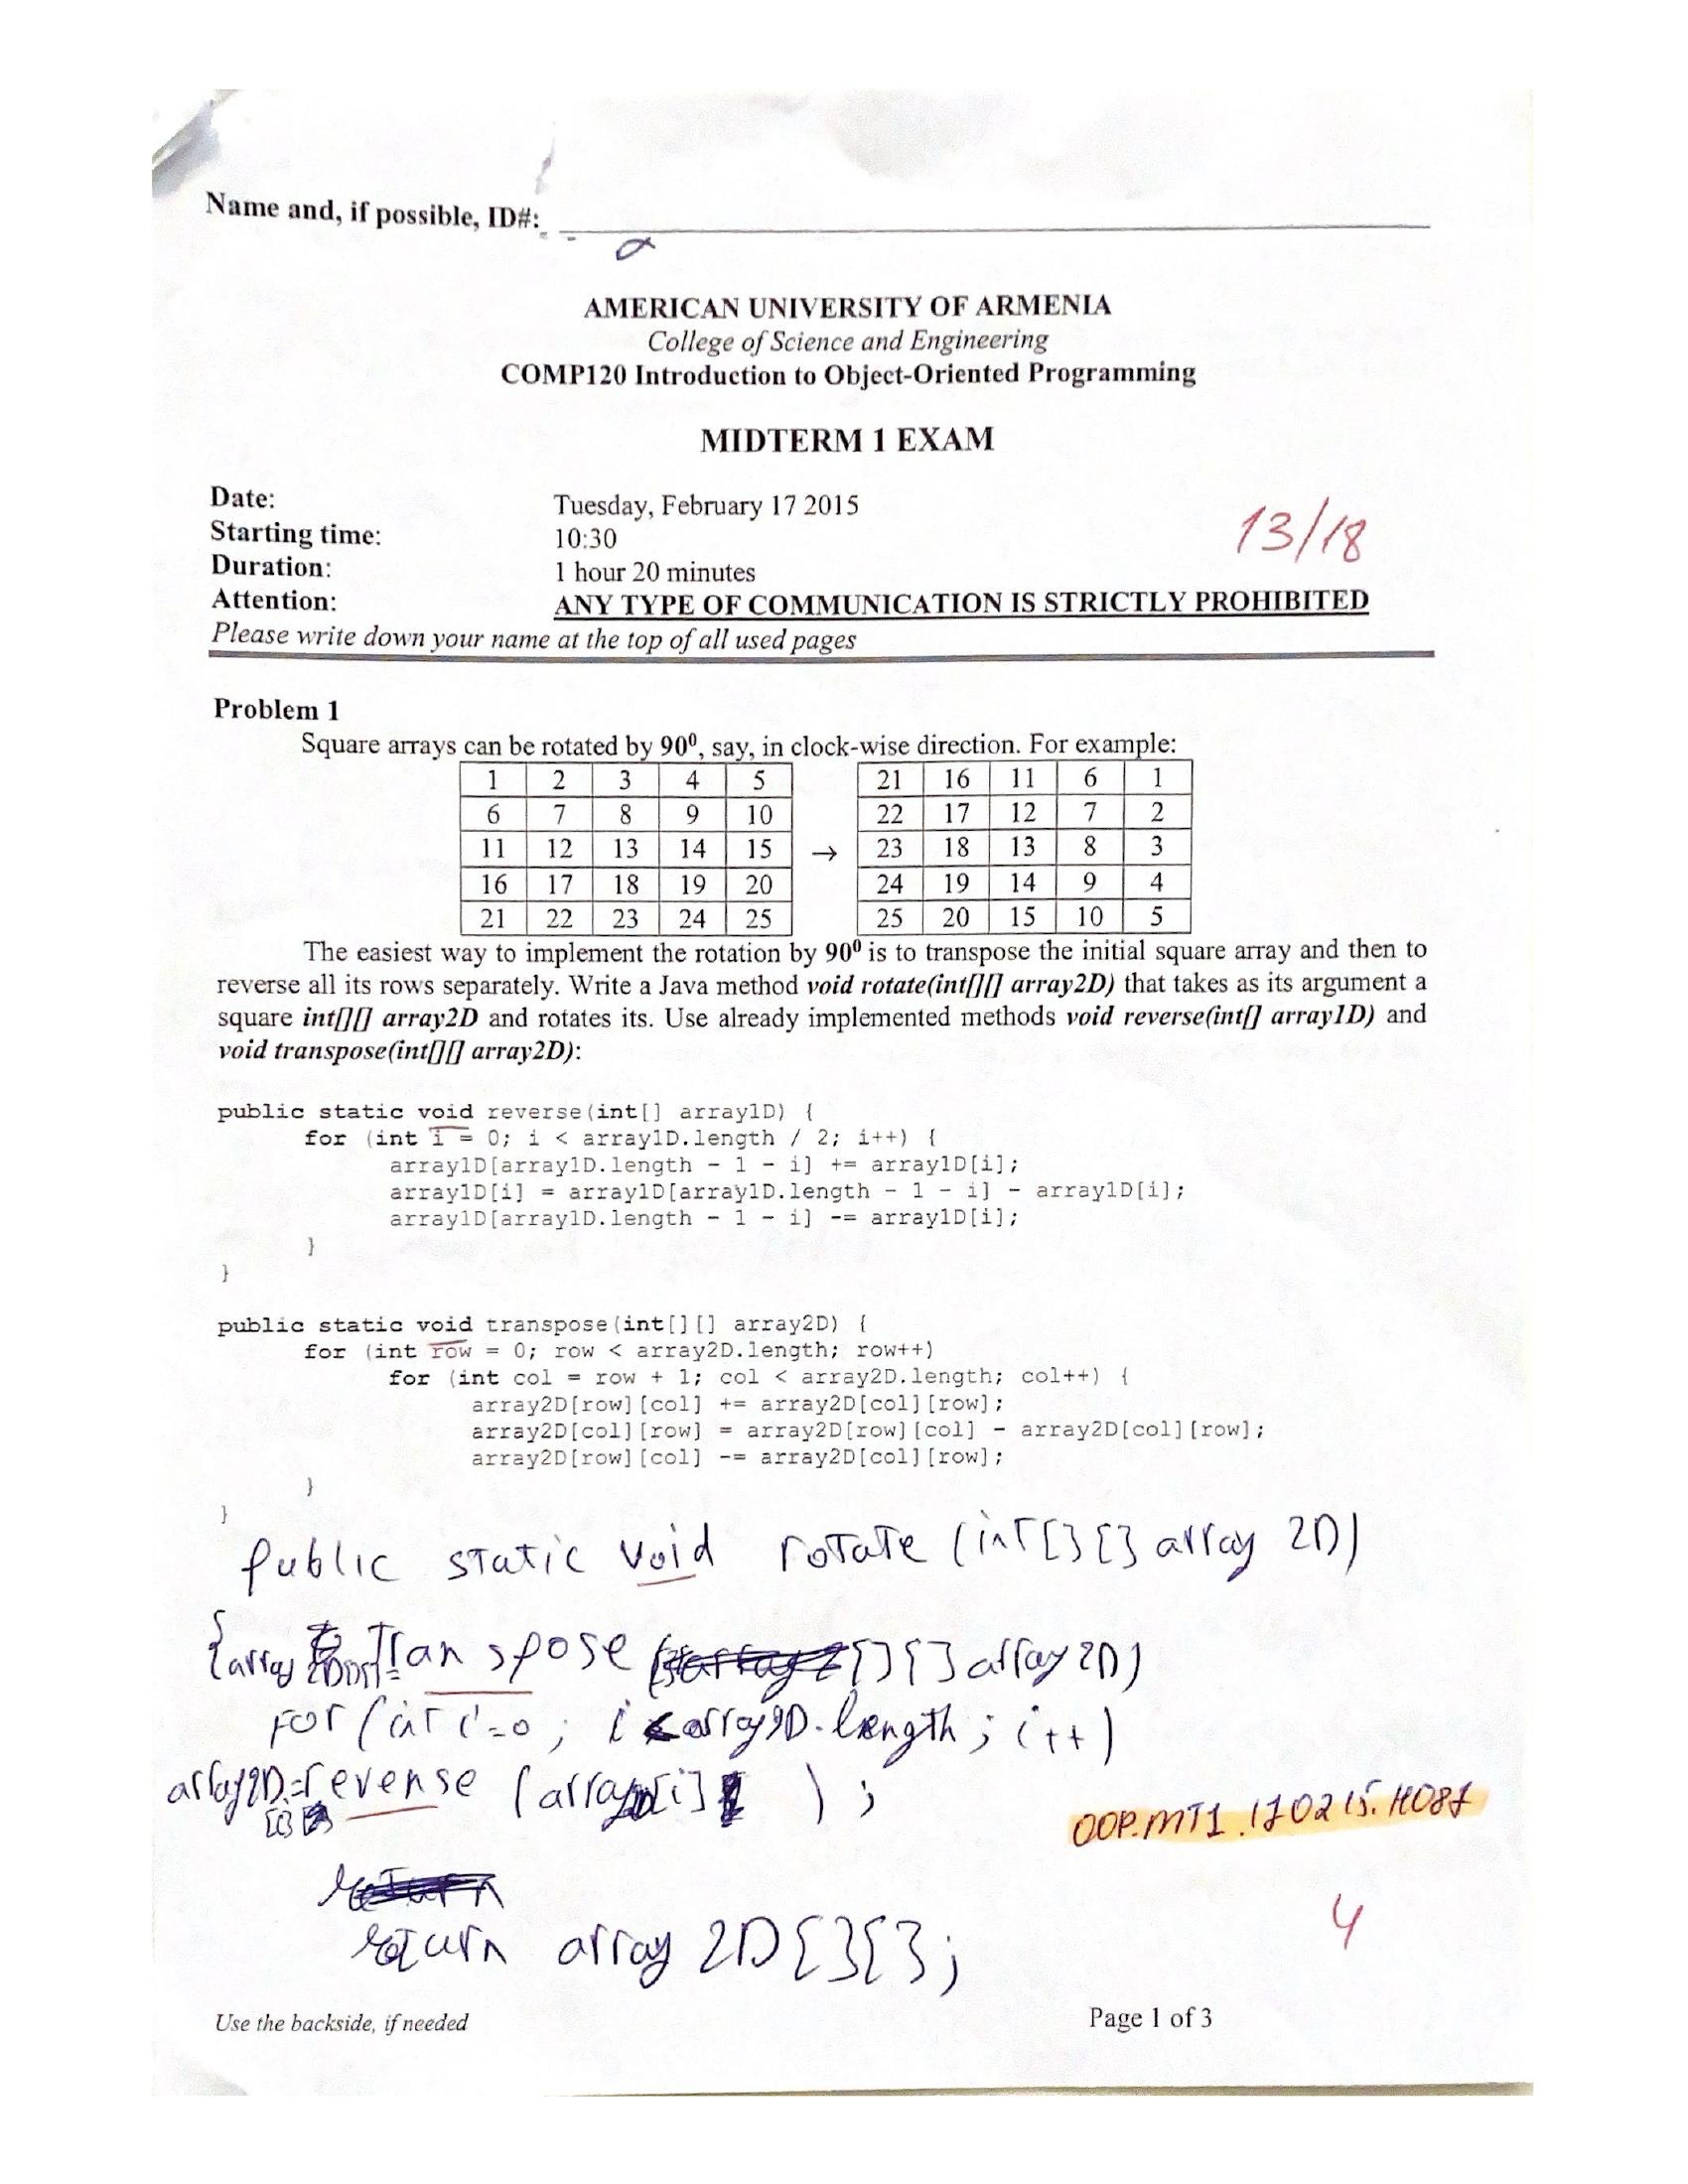 Name and, if possible, ID#:
AMERICAN UNIVERSITY OF ARMENIA
College of Science and Engineering
COMP120 Introduction to Object-Oriented Programming
MIDTERM 1 EXAM
Date: Tuesday, February 17 2015
Starting time: 10:30
13/18
Duration: 1 hour 20 minutes
Attention: ANY TYPE OF COMMUNICATION IS STRICTLY PROHIBITED
Please write down your name at the top of all used pages
Problem 1
Square arrays can be rotated by 90⁰, say, in clock-wise direction. For example:
1 2 3 4 5 21 16 11 6 1
6 7 8 9 10 22 17 12 7 2
11 12 13 14 15 → 23 18 13 8 3
16 17 18 19 20 24 19 14 9 4
21 22 23 24 25 25 20 15 10 5
The easiest way to implement the rotation by 90⁰ is to transpose the initial square array and then to
reverse all its rows separately. Write a Java method void rotate(int[][] array2D) that takes as its argument a
square int[][] array2D and rotates its. Use already implemented methods void reverse(int[] array1D) and
void transpose(int[][] array2D):
public static void reverse(int[] array1D) {
for (int i = 0; i < array1D.length / 2; i++) {
array1D[array1D.length - 1 - i] += array1D[i];
array1D[i] = array1D[array1D.length - 1 - i] - array1D[i];
array1D[array1D.length - 1 - i] -= array1D[i];
}
}
public static void transpose(int[][] array2D) {
for (int row = 0; row < array2D.length; row++)
for (int col = row + 1; col < array2D.length; col++) {
array2D[row][col] += array2D[col][row];
array2D[col][row] = array2D[row][col] - array2D[col][row];
array2D[row][col] -= array2D[col][row];
}
}
public static void rotate (int[][] array 2D)
{array Transpose [][] array 2D)
for (int i=0; i < array2D.length; i++)
array2D[i]=reverse (array2D[i]);
OOP.MT1.170215.H087
return
return array 2D[][];
4
Use the backside, if needed
Page 1 of 3